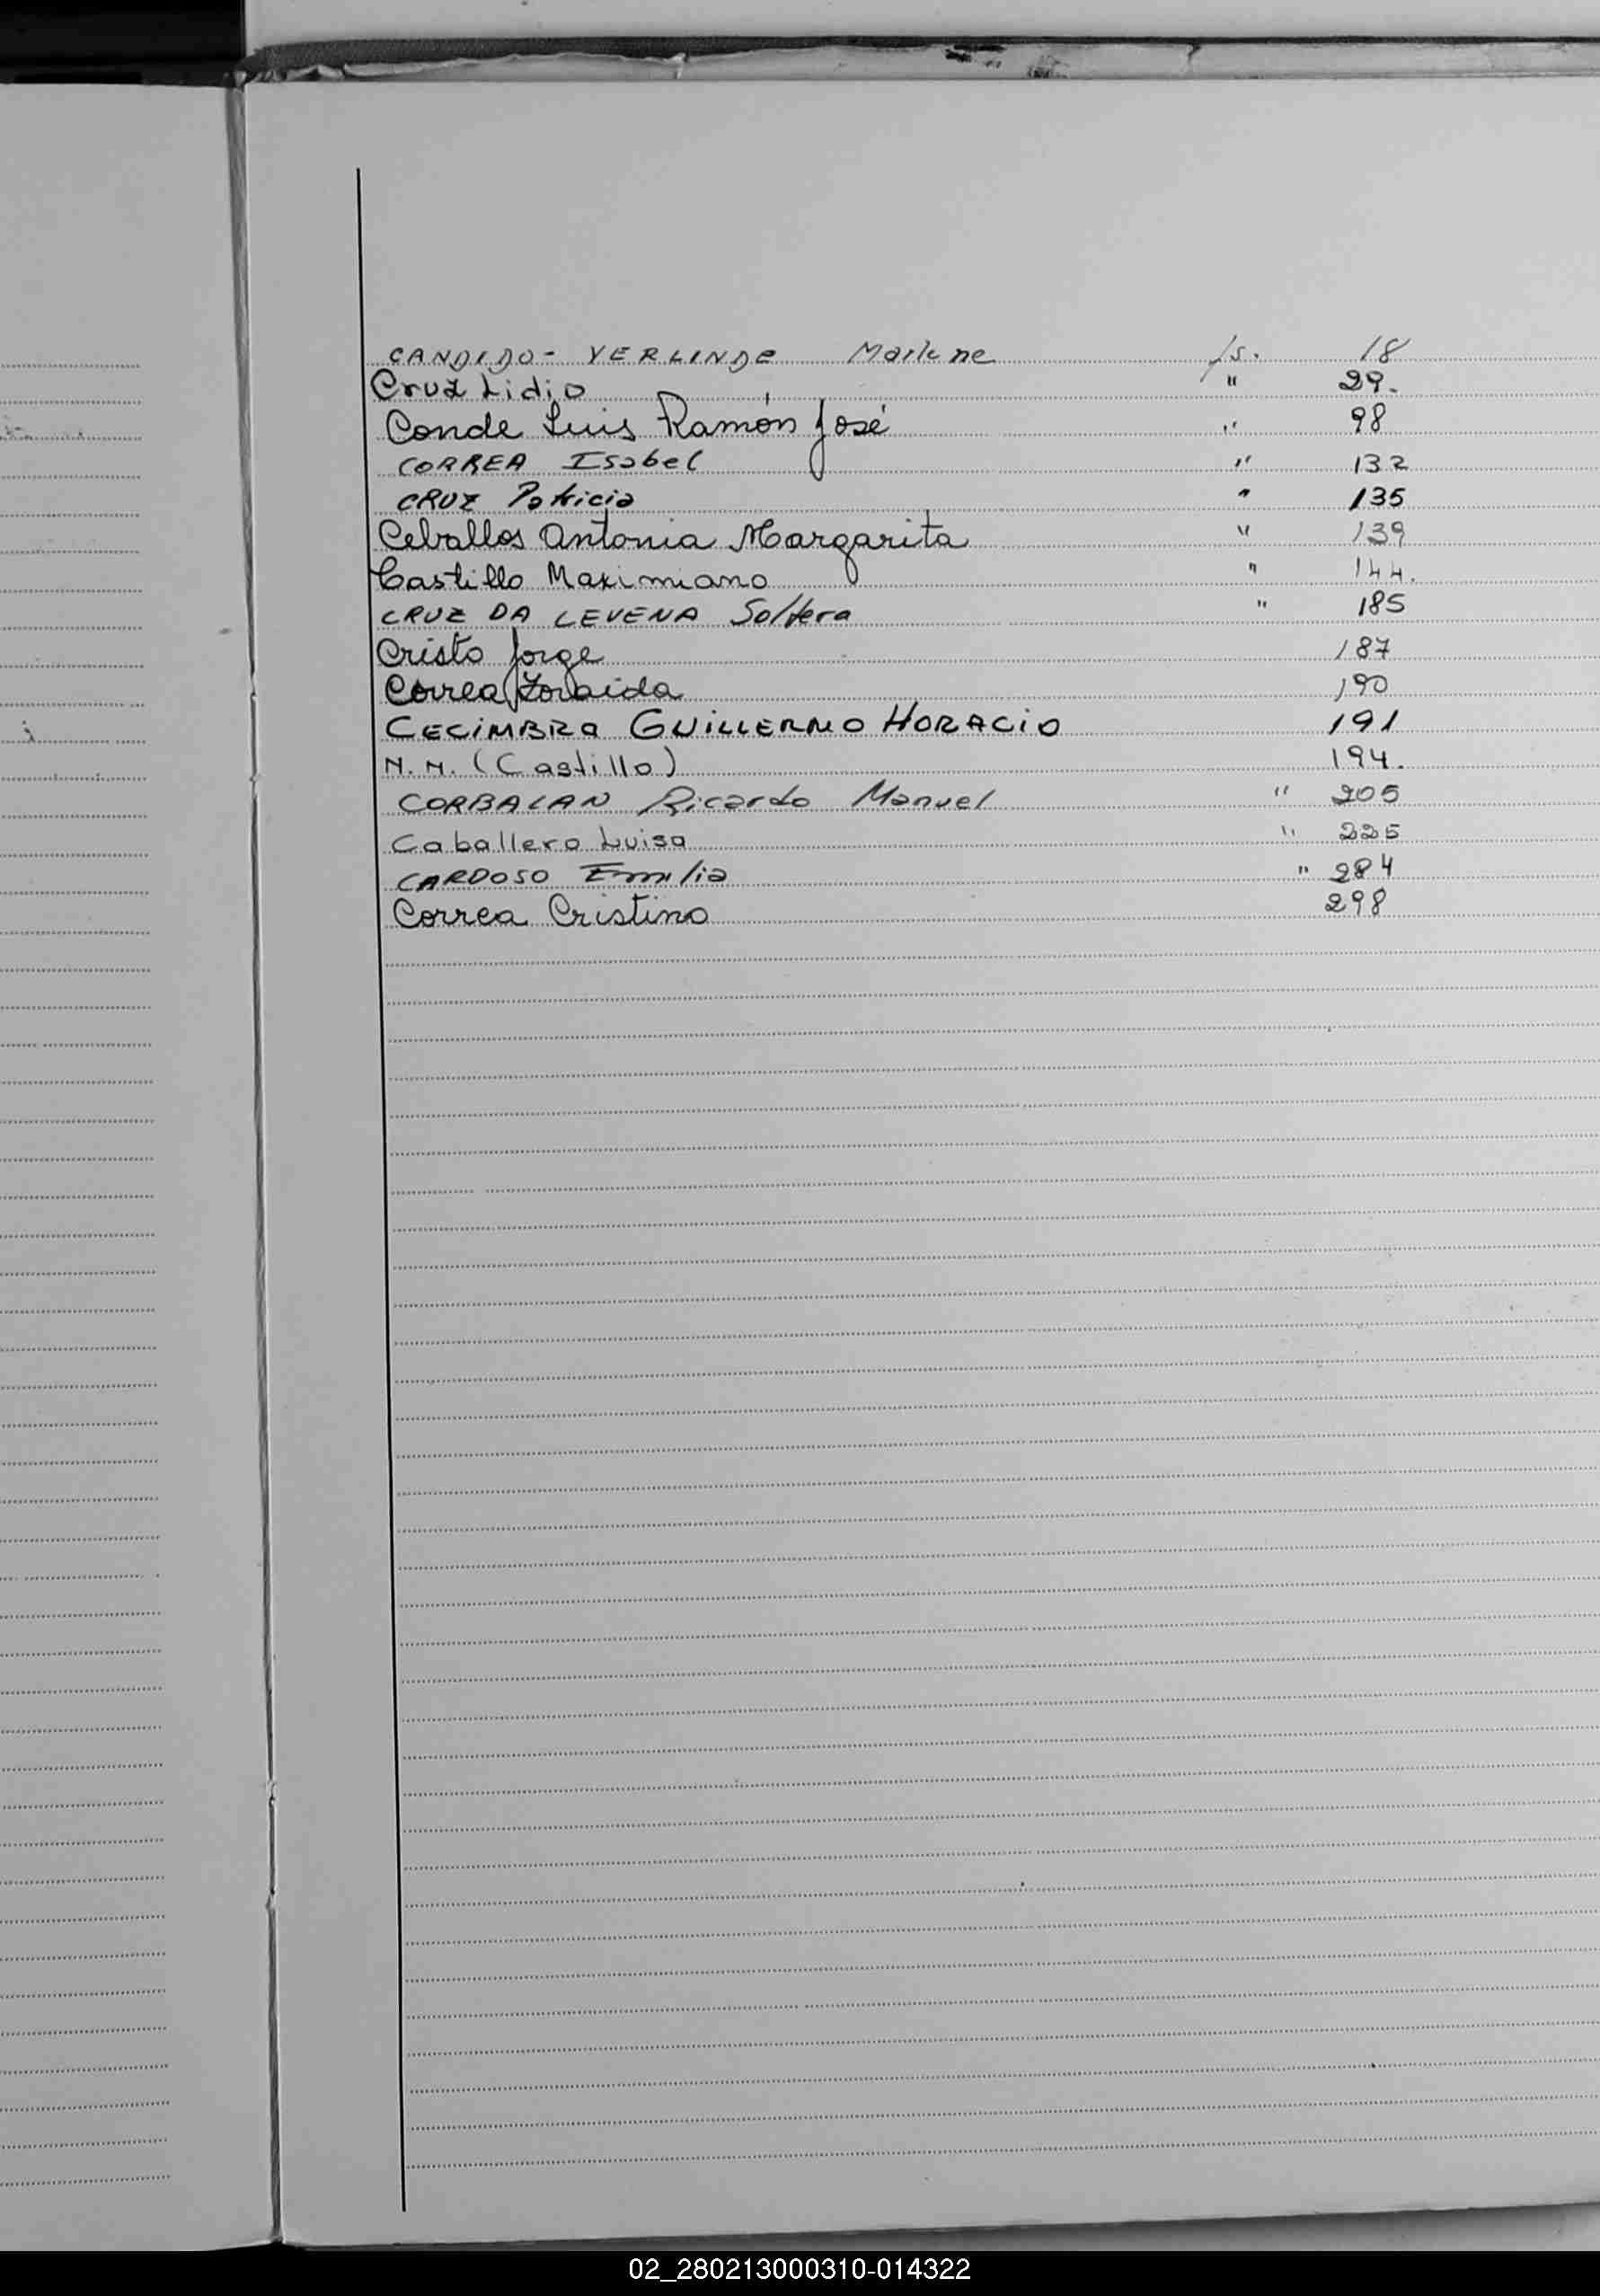 CANDIDO - VERLINDE Marlene fs. 18
Cruz Lidio " 29.
Conde Luis Ramón José " 98
CORREA Isabel " 132
CRUZ Patricia " 135
Ceballos Antonia Margarita " 139
Castillo Maximiano " 144.
CRUZ DA LEVENA Soltera " 185
Cristo Jorge 187
Correa Zoraida 190
CECIMBRA GUILLERMO HORACIO 191
N.N. (Castillo) 194.
CORBALAN Ricardo Manuel " 205
Caballero Luisa " 225
CARDOSO Emilia " 284
Correa Cristino 298
02_280213000310-014322